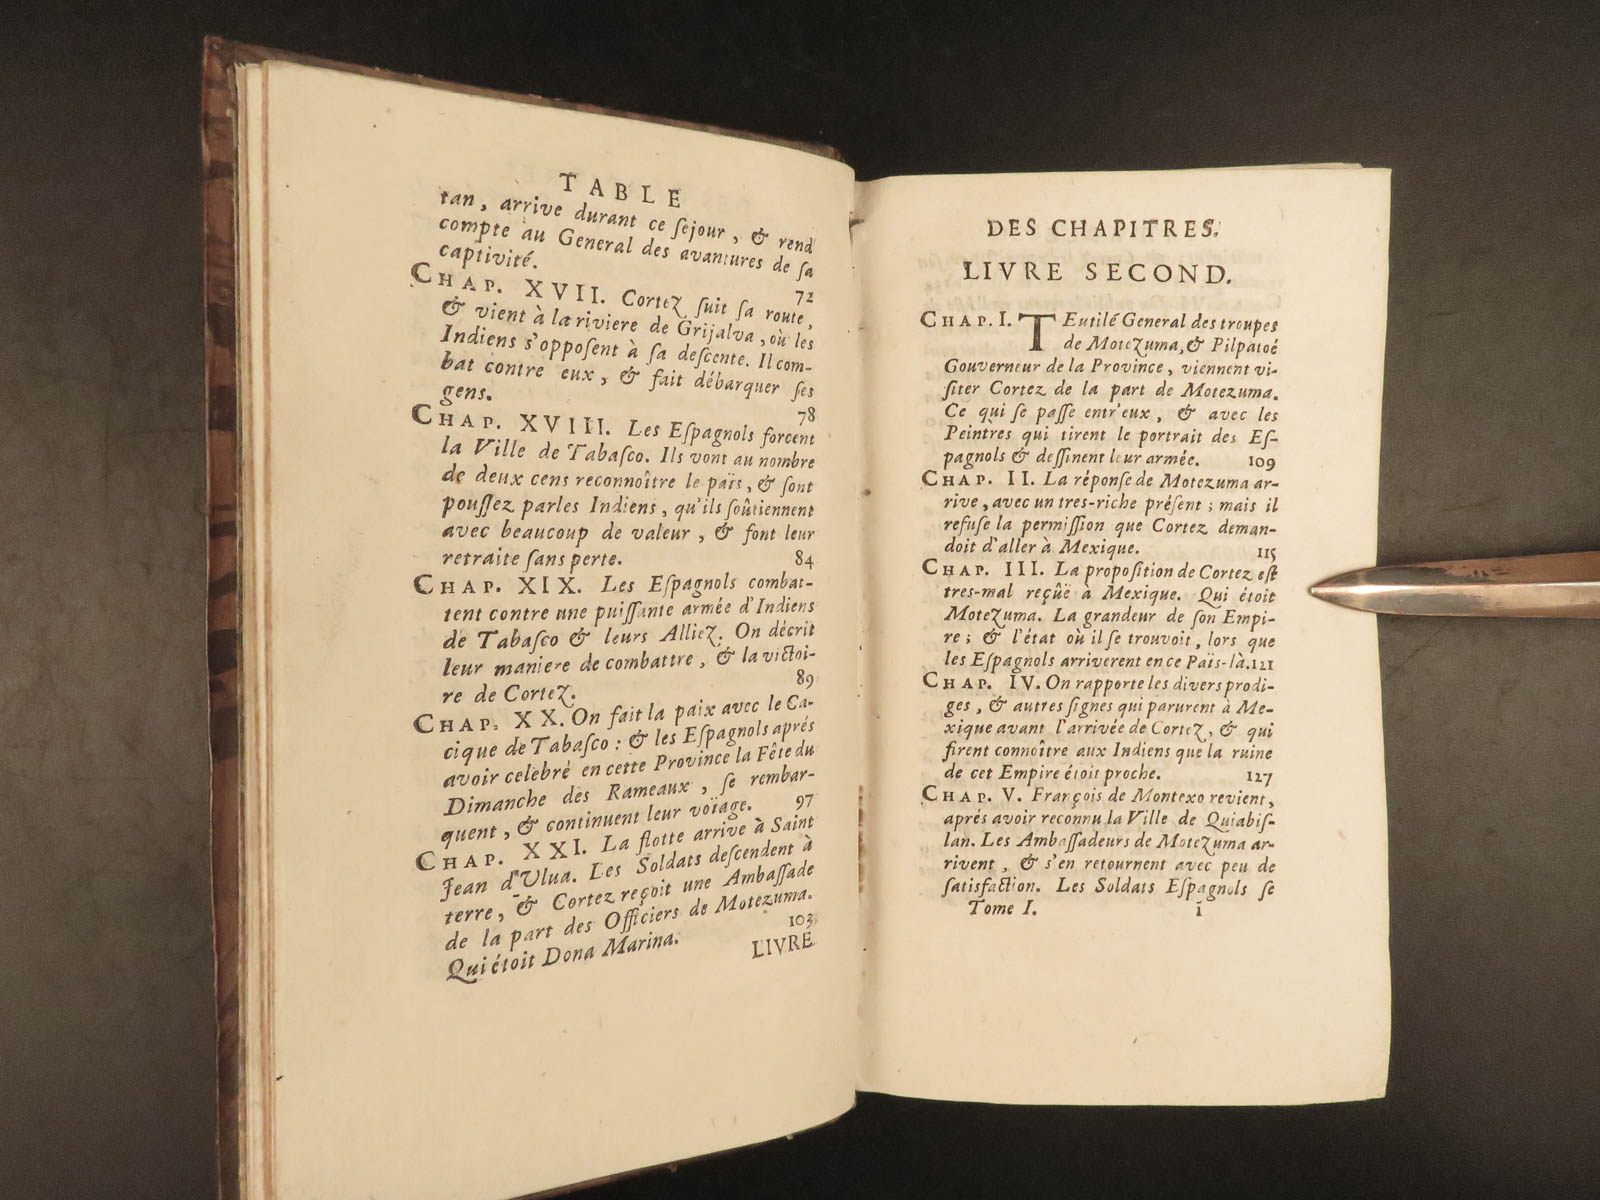 TABLE
tan, arrive durant ce ſéjour, & rend
compte au General des avantures de ſa
captivité. 72
CHAP. XVII. Cortez ſuit ſa route,
& vient à la riviere de Grijalva, où les
Indiens s'oppoſent à ſa deſcente. Il com-
bat contre eux, & fait débarquer ſes
gens. 78
CHAP. XVIII. Les Eſpagnols forcent
la Ville de Tabaſco. Ils vont au nombre
de deux cens reconnoître le païs, & ſont
pouſſez par les Indiens, qu'ils ſoûtiennent
avec beaucoup de valeur, & font leur
retraite ſans perte. 84
CHAP. XIX. Les Eſpagnols combat-
tent contre une puiſſante armée d'Indiens
de Tabaſco & leurs Alliez. On décrit
leur maniere de combattre, & la victoi-
re de Cortez. 89
CHAP. XX. On fait la paix avec le Ca-
cique de Tabaſco : & les Eſpagnols aprés
avoir celebré en cette Province la Fête du
Dimanche des Rameaux, ſe rembar-
quent, & continuent leur voïage. 97
CHAP. XXI. La flotte arrive à Saint
Jean d'Ulua. Les Soldats deſcendent à
terre, & Cortez reçoit une Ambaſſade
de la part des Officiers de Motezuma.
Qui étoit Dona Marina. 103
LIVRE
DES CHAPITRES.
LIVRE SECOND.
CHAP. I. TEutilé General des troupes
de Motezuma, & Pilpatoé
Gouverneur de la Province, viennent vi-
ſiter Cortez de la part de Motezuma.
Ce qui ſe paſſe entr'eux, & avec les
Peintres qui tirent le portrait des Eſ-
pagnols & deſſinent leur armée. 109
CHAP. II. La réponſe de Motezuma ar-
rive, avec un tres-riche préſent ; mais il
refuſe la permiſſion que Cortez deman-
doit d'aller à Mexique. 115
CHAP. III. La propoſition de Cortez eſt
tres-mal reçûë à Mexique. Qui étoit
Motezuma. La grandeur de ſon Empi-
re ; & l'état où il ſe trouvoit, lors que
les Eſpagnols arriverent en ce Païs-là. 121
CHAP. IV. On rapporte les divers prodi-
ges, & autres ſignes qui parurent à Me-
xique avant l'arrivée de Cortez, & qui
firent connoître aux Indiens que la ruine
de cet Empire étoit proche. 127
CHAP. V. François de Montexo revient,
aprés avoir reconnu la Ville de Quiabiſ-
lan. Les Ambaſſadeurs de Motezuma ar-
rivent, & s'en retournent avec peu de
ſatisfaction. Les Soldats Eſpagnols ſe
Tome I. i